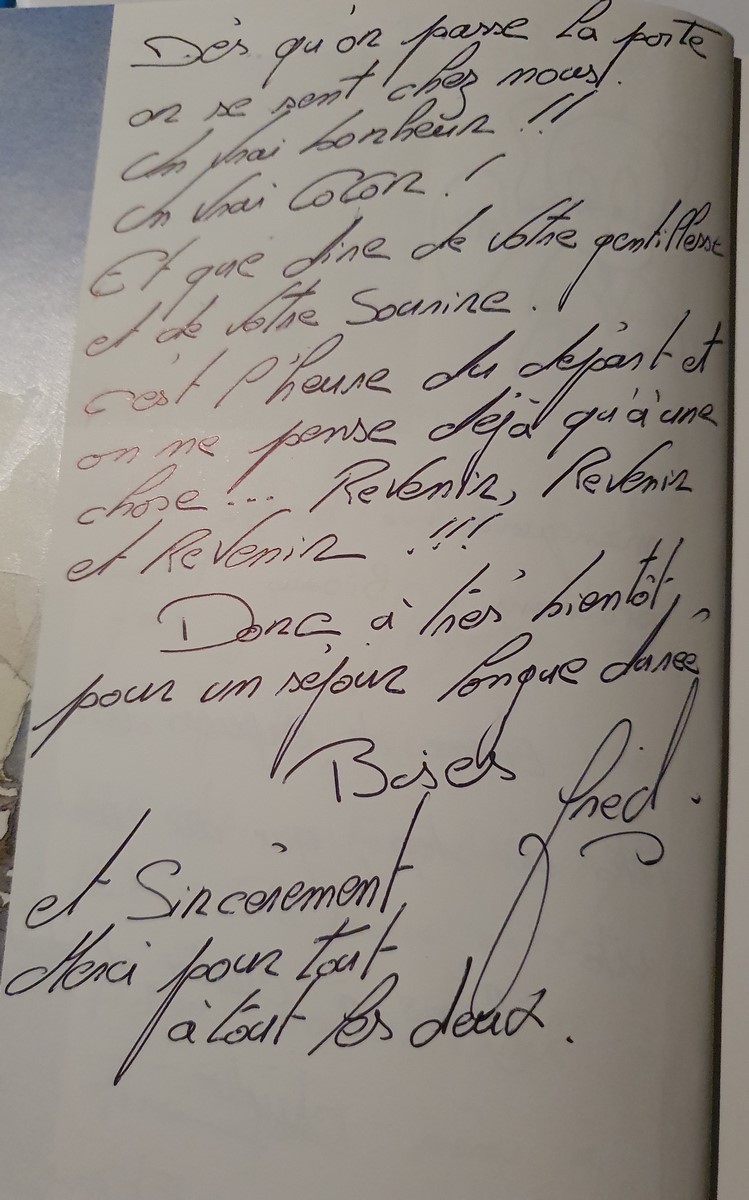 Dès qu'on passe la porte
on se sent chez nous.
Un vrai bonheur !!
Un vrai cocon !
Et que dire de votre gentillesse
et de votre Sourire.
c'est l'heure du départ et
on ne pense déjà qu'à une
chose... Revenir, Revenir
et Revenir !!!
Donc à très bientôt,
pour un séjour longue durée
Bises
Fred.
et Sincèrement
Merci pour tout
à tout les deux.